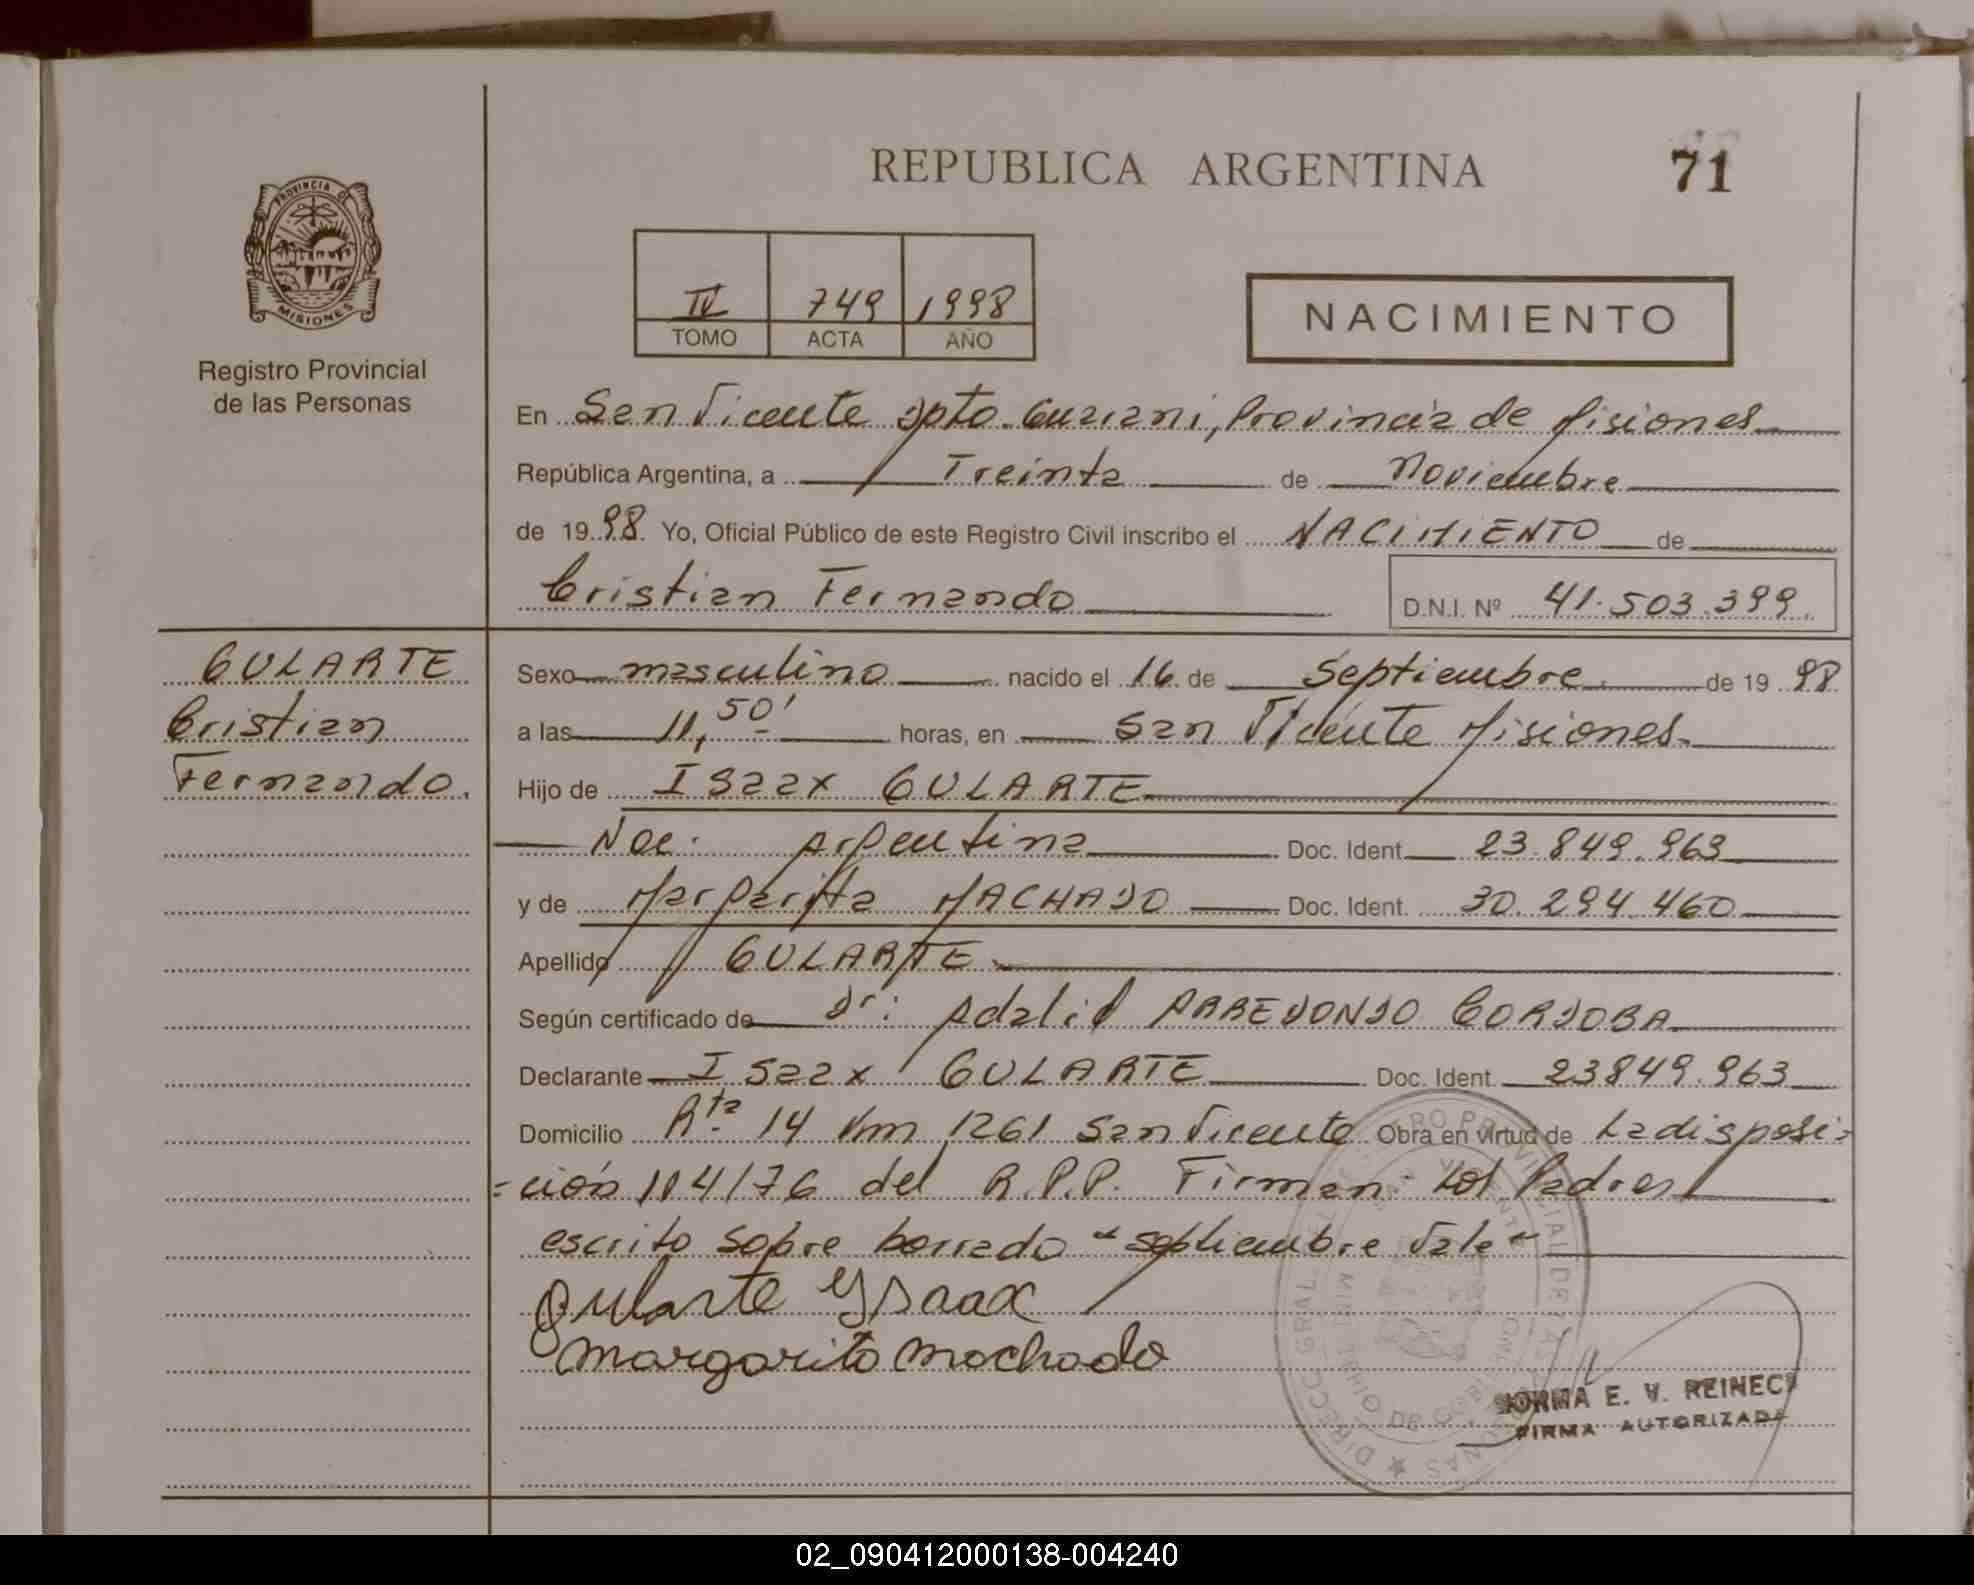 REPUBLICA ARGENTINA
71
PROVINCIA DE
MISIONES
Registro Provincial
de las Personas
IV 749 1998
TOMO ACTA AÑO
NACIMIENTO
En San Vicente Dpto. Guarani, Provincia de Misiones
República Argentina, a Treinta de Noviembre
de 1998 Yo, Oficial Público de este Registro Civil inscribo el NACIMIENTO de
Cristian Fernando D.N.I. Nº 41.503.399.
GULARTE
Cristian
Fernando.
Sexo masculino nacido el 16 de Septiembre de 1998
a las 11,50' horas, en San Vicente Misiones
Hijo de Isaax GULARTE
Nac. Argentina Doc. Ident. 23.849.963
y de Margarita MACHADO Doc. Ident. 30.294.460
Apellido GULARTE
Según certificado de Dr: Adalid ARREDONDO CORDOBA
Declarante Isaax GULARTE Doc. Ident. 23849.963
Domicilio Rta 14 Km 1261 San Vicente Obra en virtud de La disposi=
=ción 114/76 del R.P.P. Firman los Padres
escrito sobre borrado "septiembre Vale"
Gularte Ysaax
Margarita Machado
NORMA E. V. REINECK
FIRMA AUTORIZADA
02_090412000138-004240